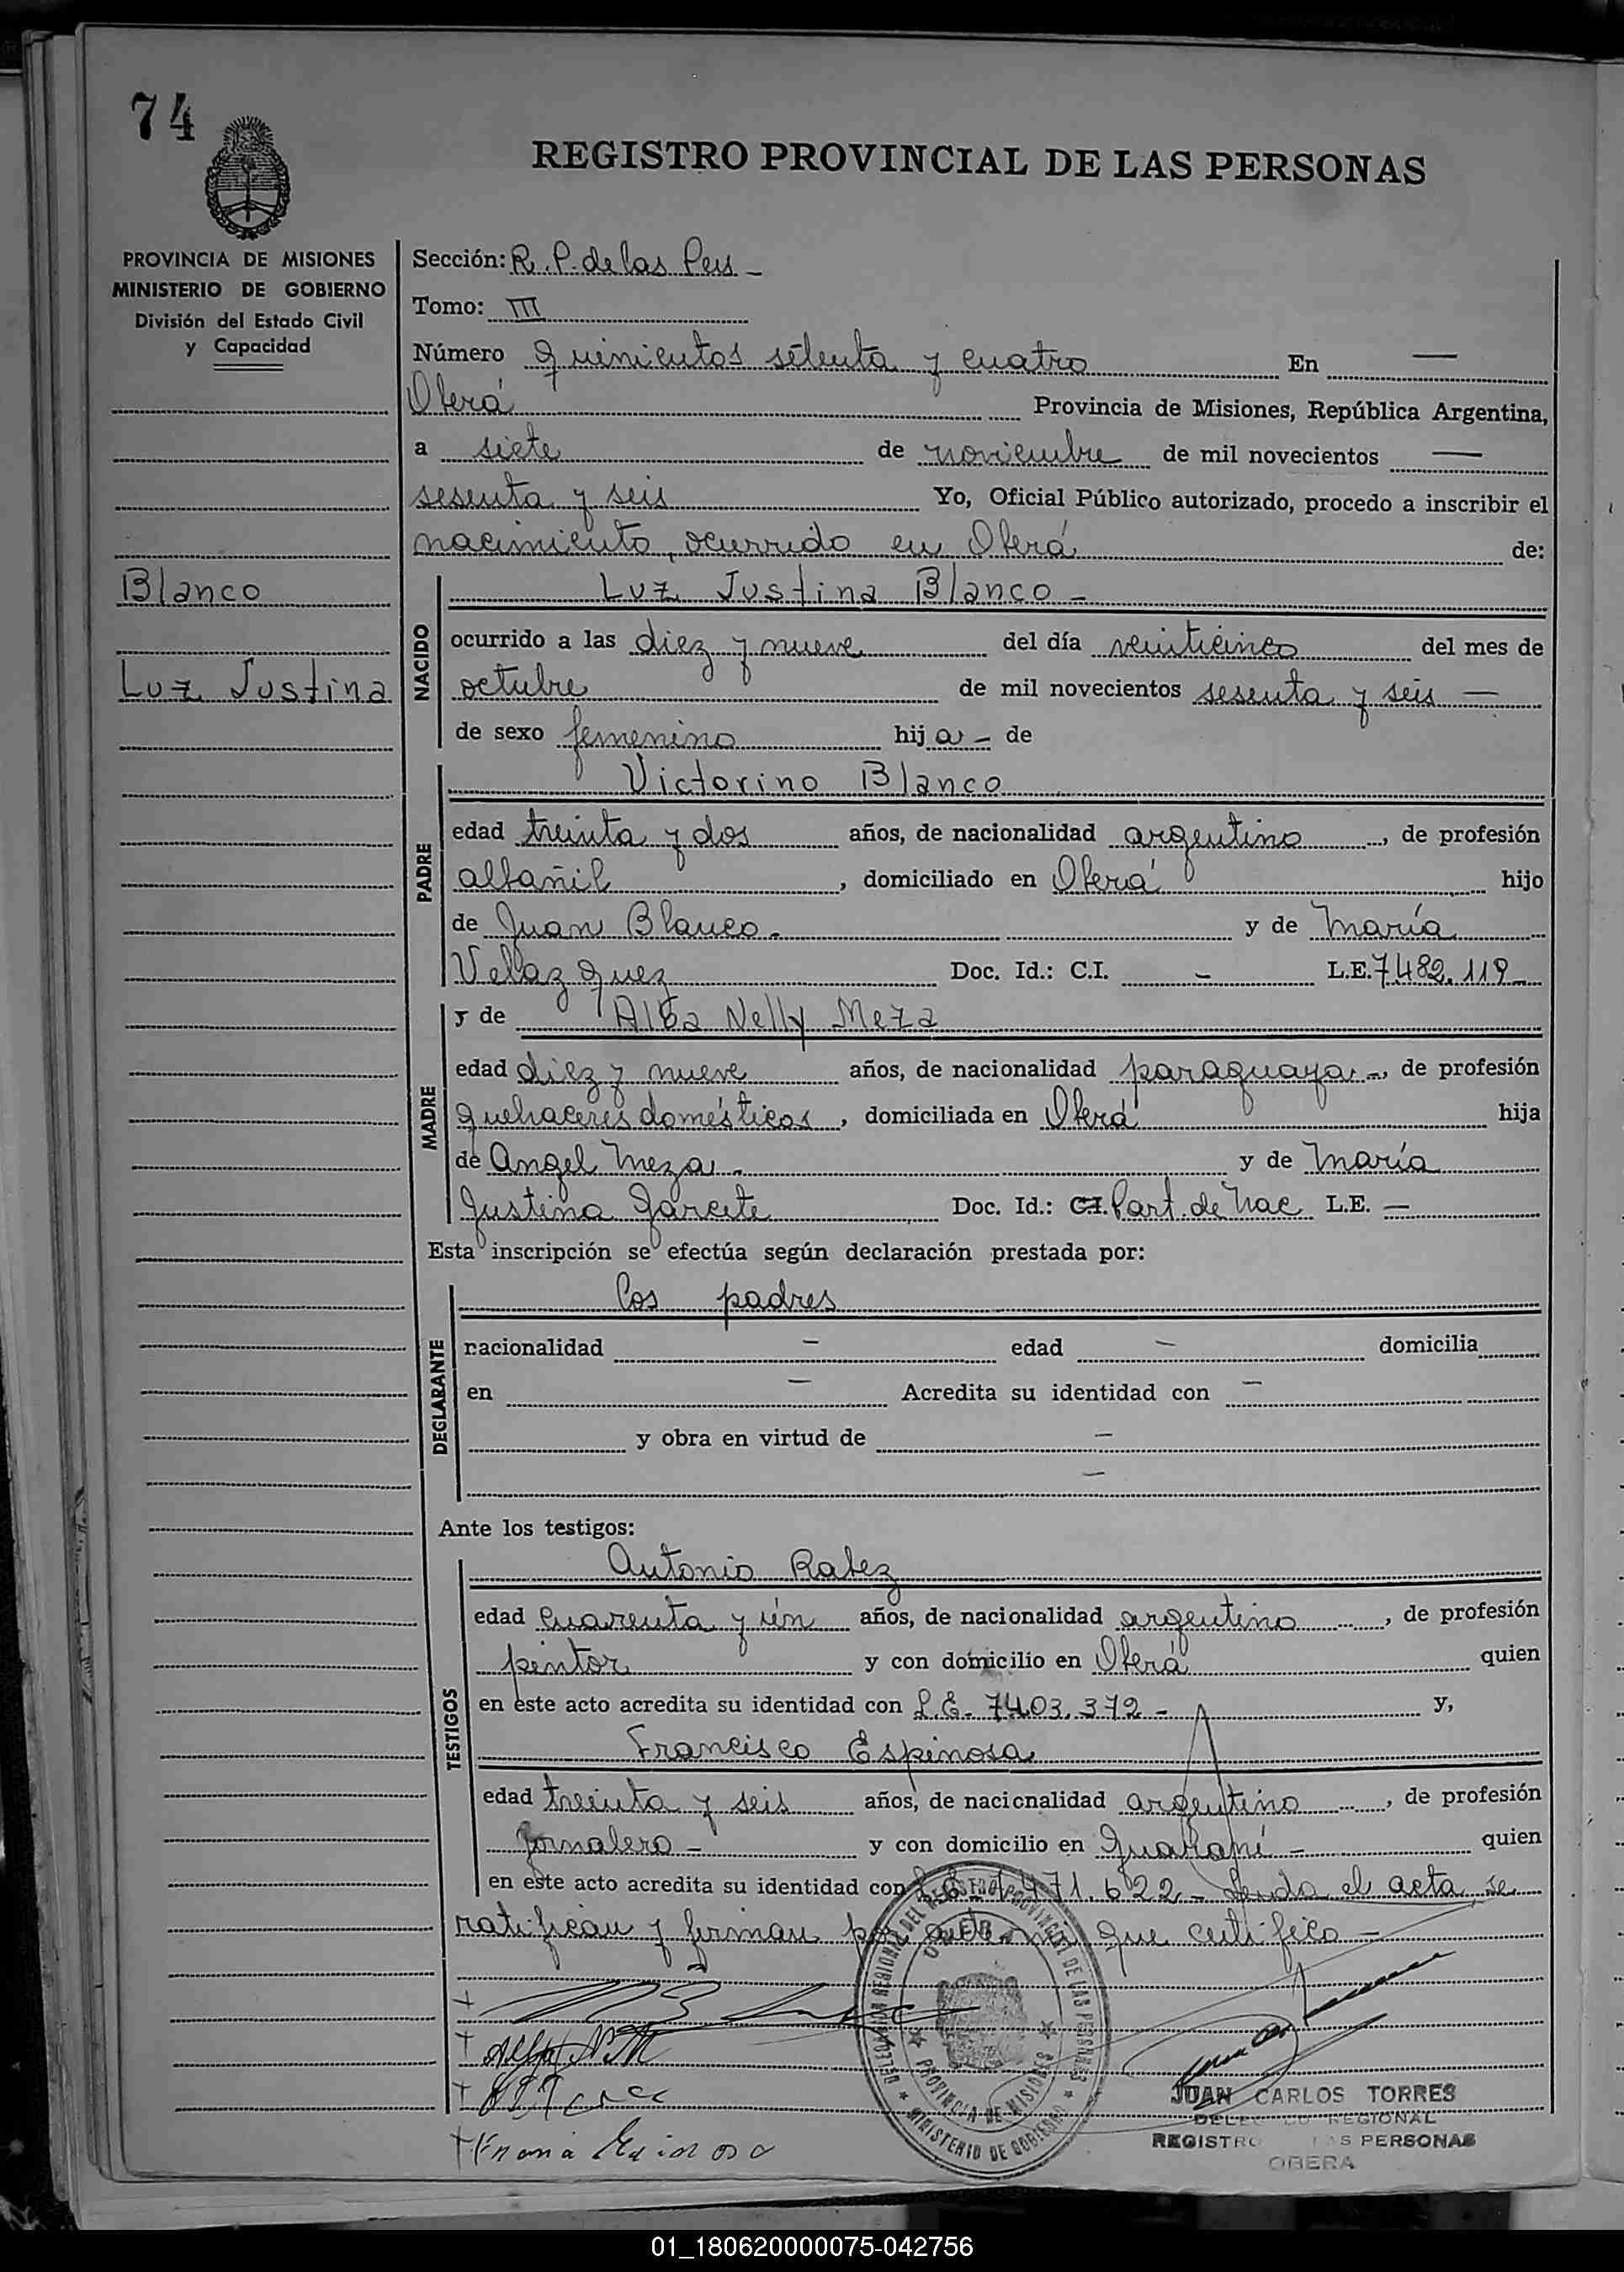 74
REGISTRO PROVINCIAL DE LAS PERSONAS
PROVINCIA DE MISIONES
MINISTERIO DE GOBIERNO
División del Estado Civil
y Capacidad
Blanco
Luz Justina
Sección: R. P. de las Pers -
Tomo: III
Número quinientos setenta y cuatro En —
Oberá Provincia de Misiones, República Argentina,
a siete de noviembre de mil novecientos —
sesenta y seis Yo, Oficial Público autorizado, procedo a inscribir el
nacimiento, ocurrido en Oberá de:
NACIDO
Luz Justina Blanco -
ocurrido a las diez y nueve del día veinticinco del mes de
octubre de mil novecientos sesenta y seis —
de sexo femenino hija - de
PADRE
Victorino Blanco
edad treinta y dos años, de nacionalidad argentino, de profesión
albañil, domiciliado en Oberá hijo
de Juan Blanco. y de María
Velazquez Doc. Id.: C.I. - L.E. 7.482.119
MADRE
y de Alba Nelly Meza
edad diez y nueve años, de nacionalidad paraguaya -, de profesión
quehaceres domésticos, domiciliada en Oberá hija
de Angel Meza. y de María
Justina Garcete Doc. Id.: C.I. Part. de Nac L.E. —
Esta inscripción se efectúa según declaración prestada por:
DECLARANTE
los padres
nacionalidad - edad - domicilia
en - Acredita su identidad con -
y obra en virtud de -
-
Ante los testigos:
TESTIGOS
Antonio Rabez
edad cuarenta y un años, de nacionalidad argentino, de profesión
pintor y con domicilio en Oberá quien
en este acto acredita su identidad con L.E. 7.403.372 - y,
Francisco Espinosa
edad treinta y seis años, de nacionalidad argentino, de profesión
Jornalero - y con domicilio en Guaraní - quien
en este acto acredita su identidad con 471.622 - Leida el acta, se
ratifican y firman por ante mi que certifico -
DELEGACION REGIONAL DEL REGISTRO PROVINCIAL DE LAS PERSONAS
OBERA
PROVINCIA DE MISIONES
MINISTERIO DE GOBIERNO
JUAN CARLOS TORRES
REGIONAL
PERSONAS
OBERA
01_180620000075-042756